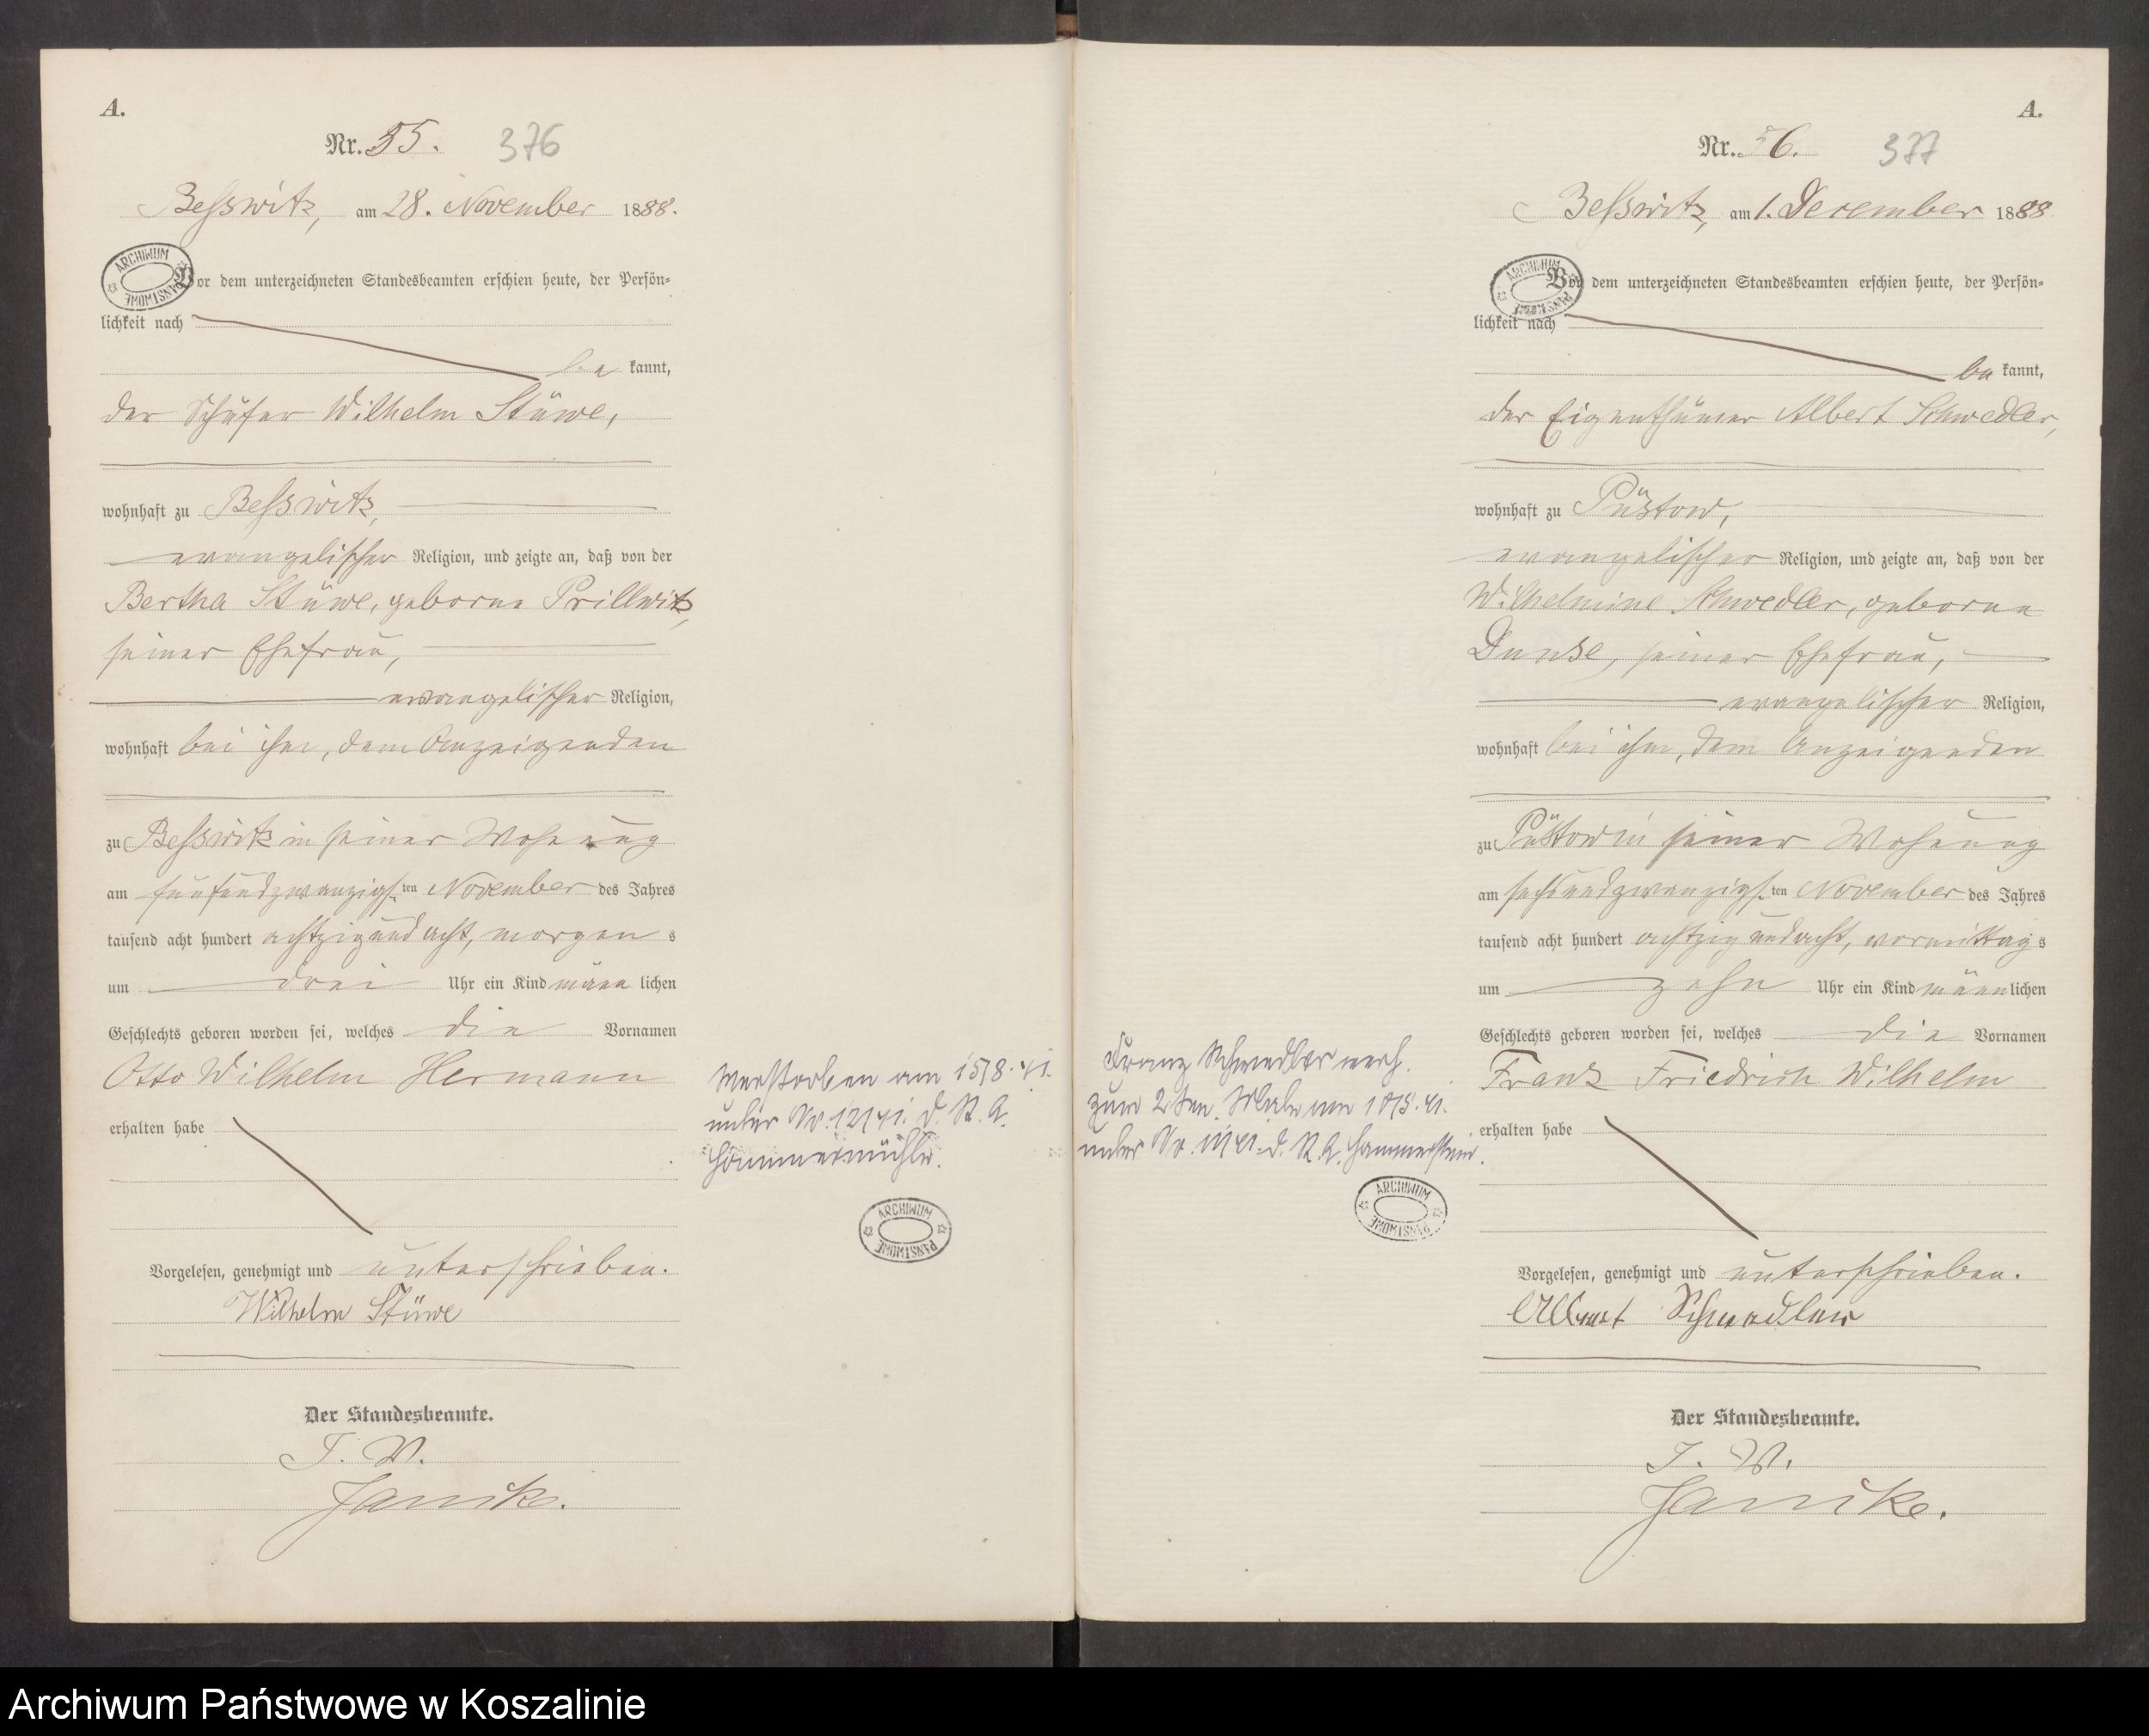 A.
Nr. 55. 376
Besswitz, am 28. November 1888.
ARCHIWUM PAŃSTWOWE
Vor dem unterzeichneten Standesbeamten erschien heute, der Persön-
lichkeit nach
be kannt,
der Schäfer Wilhelm Stüwe,
wohnhaft zu Besswitz,
evangelischer Religion, und zeigte an, daß von der
Bertha Stüwe, geborne Prillwitz,
seiner Ehefrau,
evangelischer Religion,
wohnhaft bei ihm, dem Anzeigenden
zu Besswitz in seiner Wohnung
am fünfundzwanzigsten November des Jahres
tausend acht hundert achtzig und acht, morgens
um drei Uhr ein Kind männlichen
Geschlechts geboren worden sei, welches die Vornamen
Otto Wilhelm Hermann
erhalten habe
Vorgelesen, genehmigt und unterschrieben.
Wilhelm Stüwe
Der Standesbeamte.
J. V.
Janike.
verstorben am 15/8.41.
unter Nr. 12/41. d. St. A.
Hammermühle.
ARCHIWUM PAŃSTWOWE
A.
Nr. 56. 377
Besswitz, am 1. Dezember 1888
ARCHIWUM PAŃSTWOWE
Vor dem unterzeichneten Standesbeamten erschien heute, der Persön-
lichkeit nach
be kannt,
der Eigenthümer Albert Schwedler,
wohnhaft zu Püstow,
evangelischer Religion, und zeigte an, daß von der
Wilhelmine Schwedler, geborne
Dunse, seiner Ehefrau,
evangelischer Religion,
wohnhaft bei ihm, dem Anzeigenden
zu Püstow in seiner Wohnung
am sechsundzwanzigsten November des Jahres
tausend acht hundert achtzig und acht, vormittags
um zehn Uhr ein Kind männlichen
Geschlechts geboren worden sei, welches die Vornamen
Franz Friedrich Wilhelm
erhalten habe
Vorgelesen, genehmigt und unterschrieben.
Albert Schwedler
Der Standesbeamte.
J. V.
Janike.
Franz Schwedler verh.
zum 2ten Male am 10/5.41.
unter Nr. d. St. A. Hammerstein.
ARCHIWUM PAŃSTWOWE
Archiwum Państwowe w Koszalinie